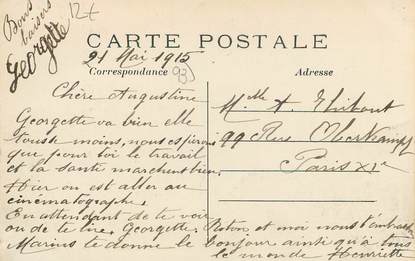 Bons
baisers
Georgette
12€
CARTE POSTALE
21 Mai 1915
Correspondance
Adresse
Chère Augustine
Georgette va bien elle
tousse moins, nous espérons
que pour toi le travail
et la santé marchent bien.
Hier on est aller au
cinématographe.
En attendant de te voir
ou de te lire. Georgette, Toton et moi nous t'embrassons
Marius te donne le bonjour ainsi qu'à tous
le monde Henriette
Melle A. Thibout
99 Rue Oberkampf
Paris XIe